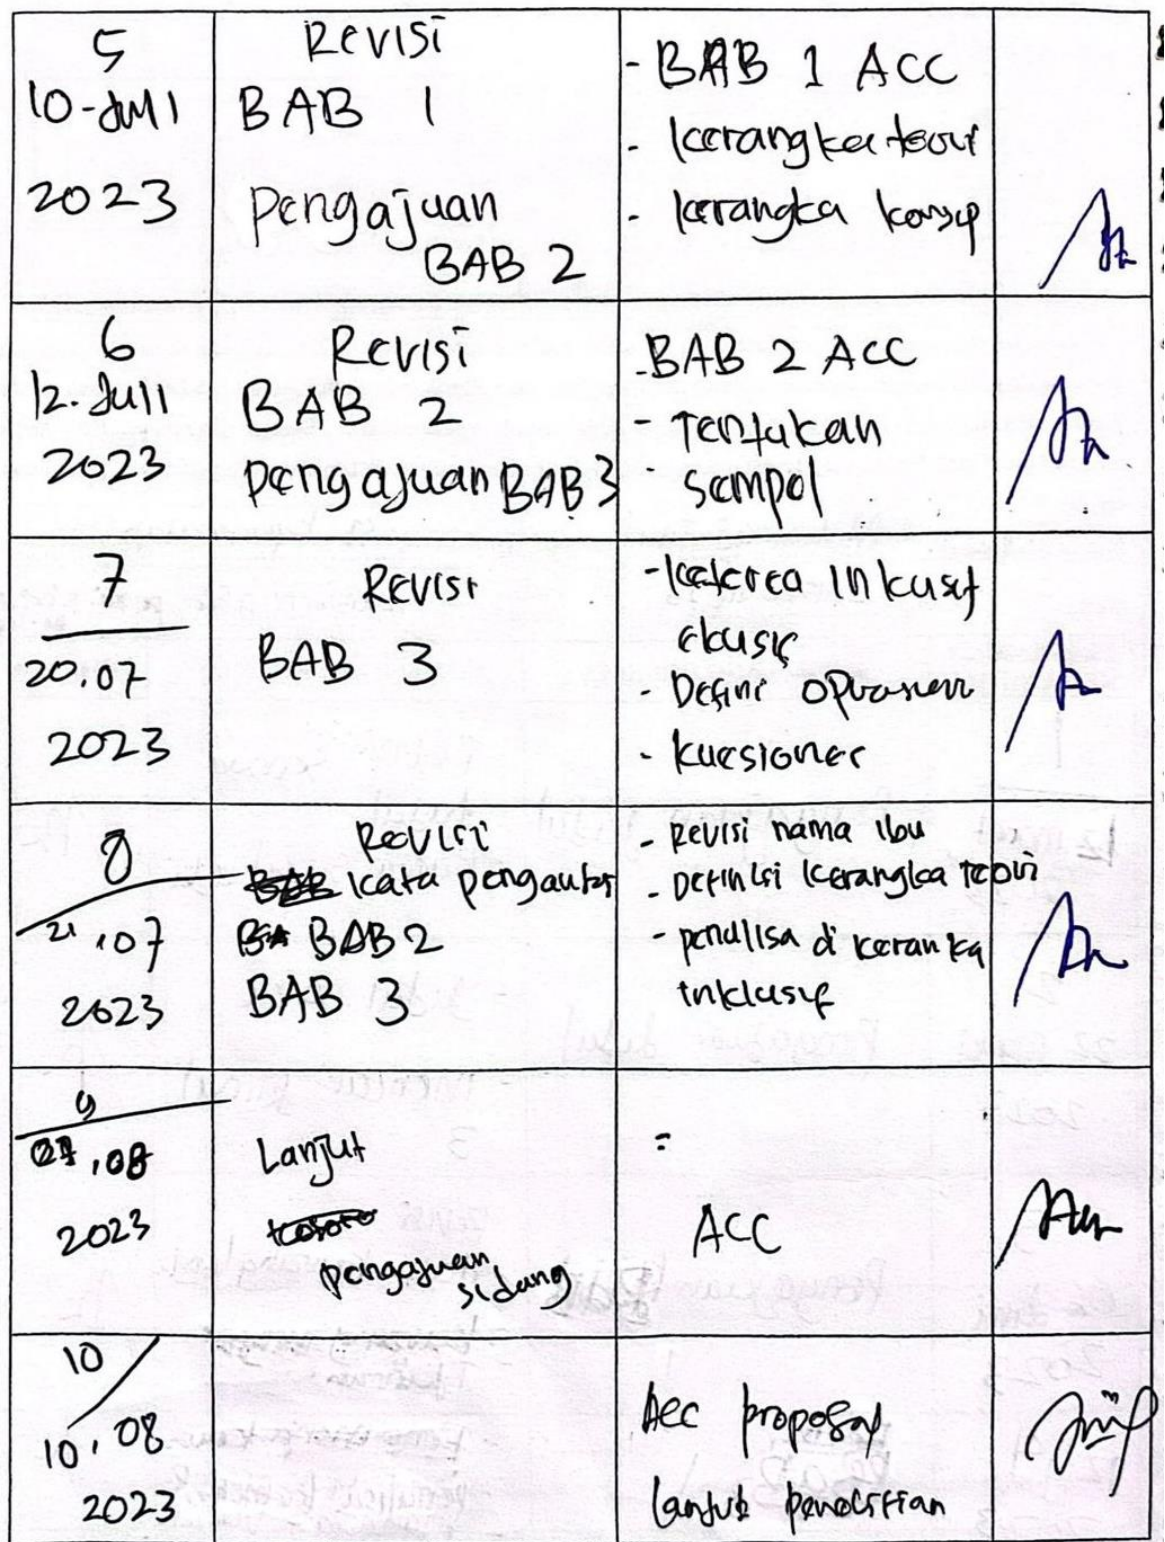 5
10-Juli
2023
Revisi
BAB 1
Pengajuan
BAB 2
- BAB 1 ACC
- kerangka teori
- kerangka konsep
6
12. Juli
2023
Revisi
BAB 2
pengajuan BAB 3
- BAB 2 ACC
- Tentukan
- sampel
7
20.07
2023
Revisi
BAB 3
- Inkusif
ekusif
- Defini
- kuesioner
8
21.07
2023
Revisi
kata pengantar
BAB 2
BAB 3
- Revisi nama ibu
- Definisi kerangka teori
- penulisa di keranka
inklusif
9
.08
2023
Lanjut
pengajuan
sidang
=
ACC
10
10.08
2023
Acc proposal
lanjut penelitian